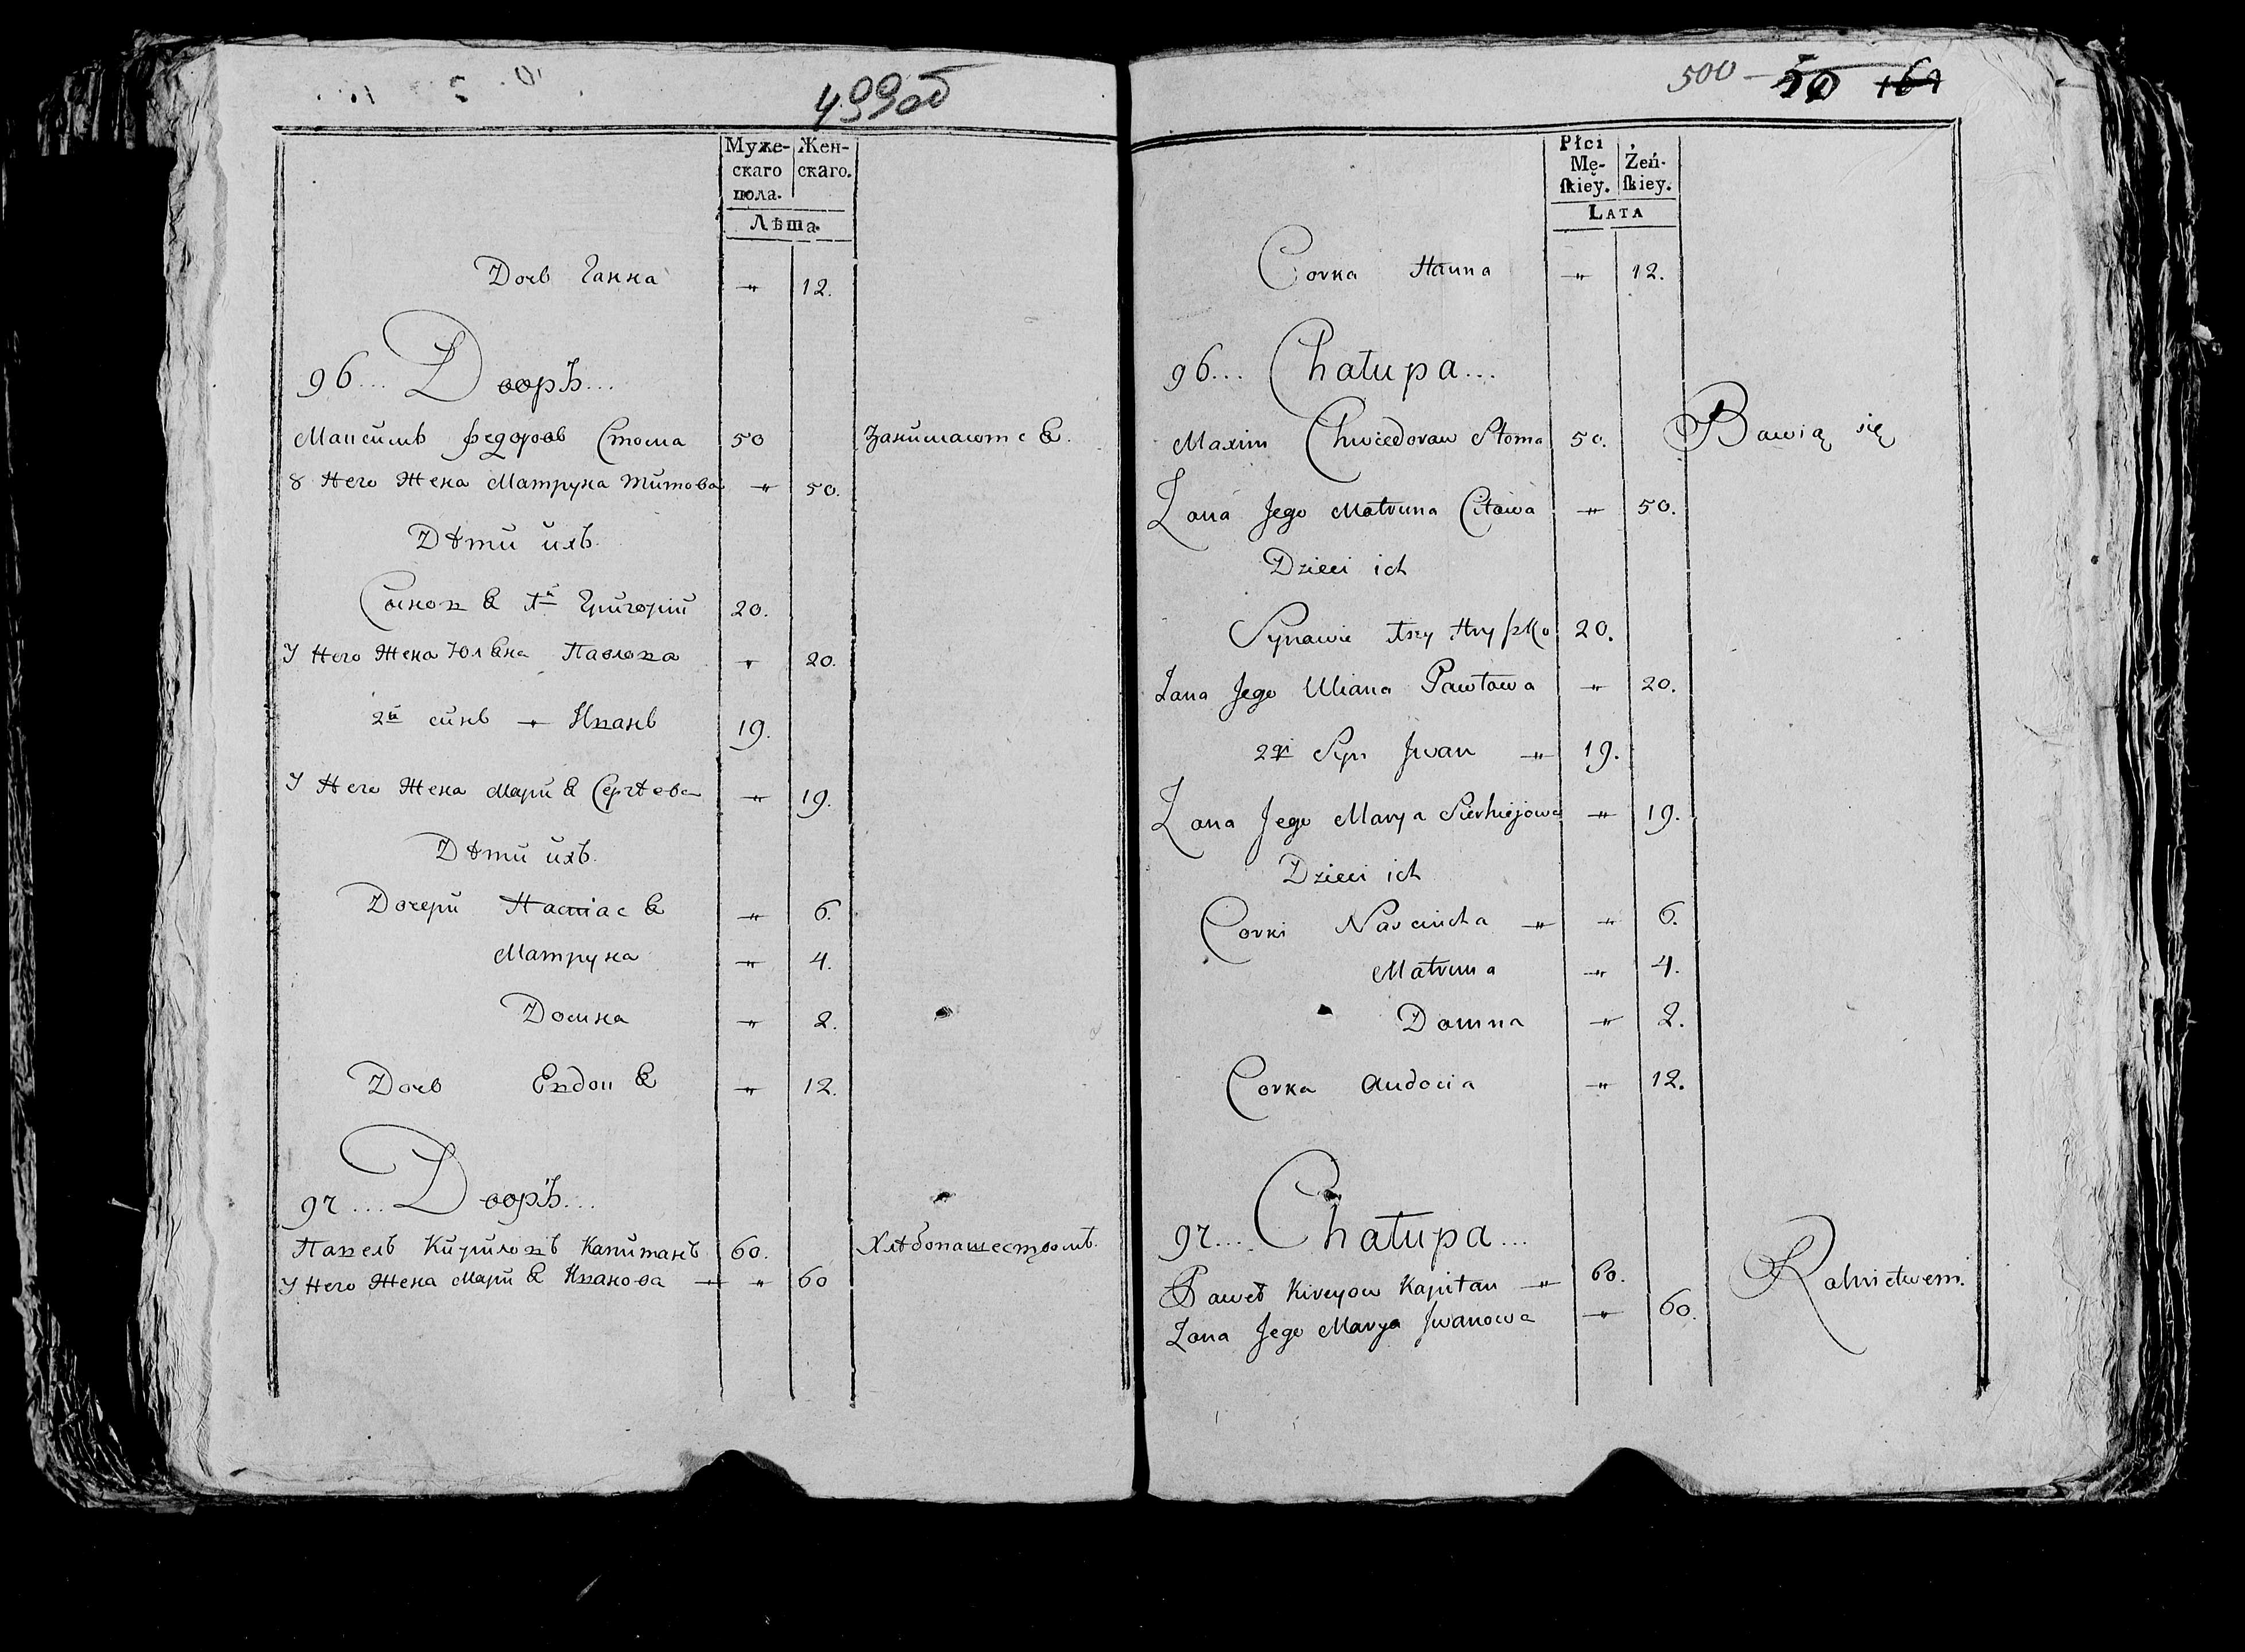 499об
Муже- Жен-
скаго скаго.
пола.
Лѣта.
Дочь Ганна " 12.
96... Дворъ...
Максимъ Федоровъ Стома 50 Занимаются.
У Него Жена Матруна Титова " 50.
Дѣти ихъ.
Сыновя 1й Григорий 20.
У Него Жена Юльяна Павлова " 20.
2й синъ " Иванъ 19.
У Него Жена Мария Сергѣева " 19.
Дѣти ихъ.
Дочери Настася " 6.
Матруна " 4.
Домна " 2.
Дочь Евдокя " 12.
97... Дворъ...
Павелъ Кириловъ Капитанъ 60. Хлѣбопашествомъ.
У Него Жена Мария Иванова " " 60
500 50 161
Płci
Mę- Żeń-
skiey. skiey.
LATA
Corka Hanna " 12.
96... Chałupa...
Maxim Chwiedoraw Stoma 50. Bawią się
Zona Jego Matruna Citowa " 50.
Dzieci ich
Synawie 1szy Hryszko 20.
Zona Jego Uliana Pawłowa " 20.
2gi Syn Jwan " 19.
Zona Jego Marya Sierhiejowa " 19.
Dzieci ich
Corki Nascincha " " 6.
Matruna " 4.
Domna " 2.
Corka Audocia " 12.
97... Chałupa...
Paweł Kireyow Kapitan " 60. Rolnictwem.
Zona Jego Marya Jwanowa " 60.